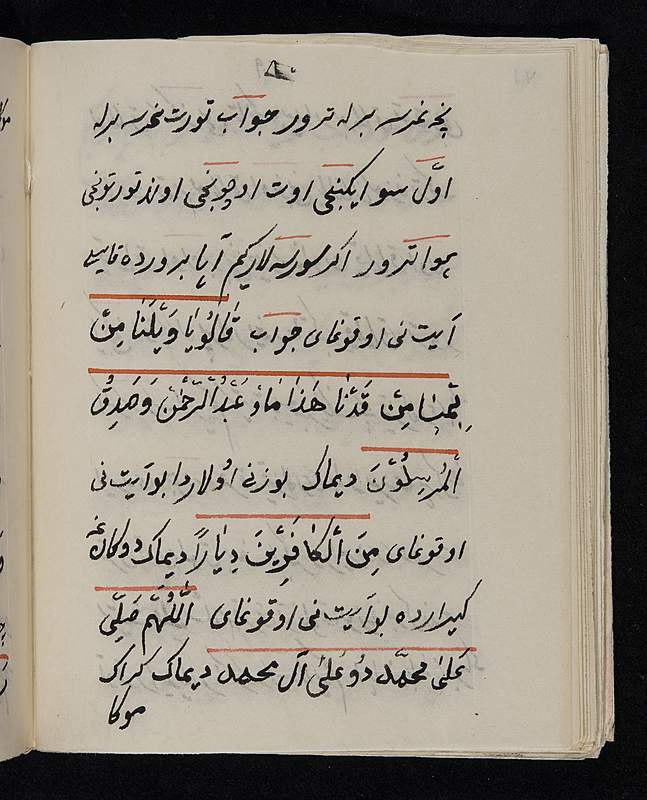 ۸۰
نچه نمرسه برله ترور جواب تورت نمرسه برله
اوّل سو ایکنجی اوت اوچونجی اون تورتونجی
هوا ترور اکر سورسه لارکیم آیا بو رورده قایسی
آیت نی اوقوغای جواب قٰالُویٰا وَیْلَنٰا مِنْ
بَعَثَنٰا مِنْ مَرْقَدِنٰا هٰذٰا مٰا وَعَدَ الرَّحْمٰنُ وَصَدَقَ
الْمُرْسَلُوْنَ دیماک بوزنی اولاردا بو آیت نی
اوقوغای مِنَ الْکٰافِرِیْنَ دِیٰاراً دیماک دوکان غه
کیرارده بو آیت نی اوقوغای اَللّٰهُمَّ صَلِّی
عَلیٰ محمّد وَ عَلیٰ آل محمد دیماک کراک
موکا